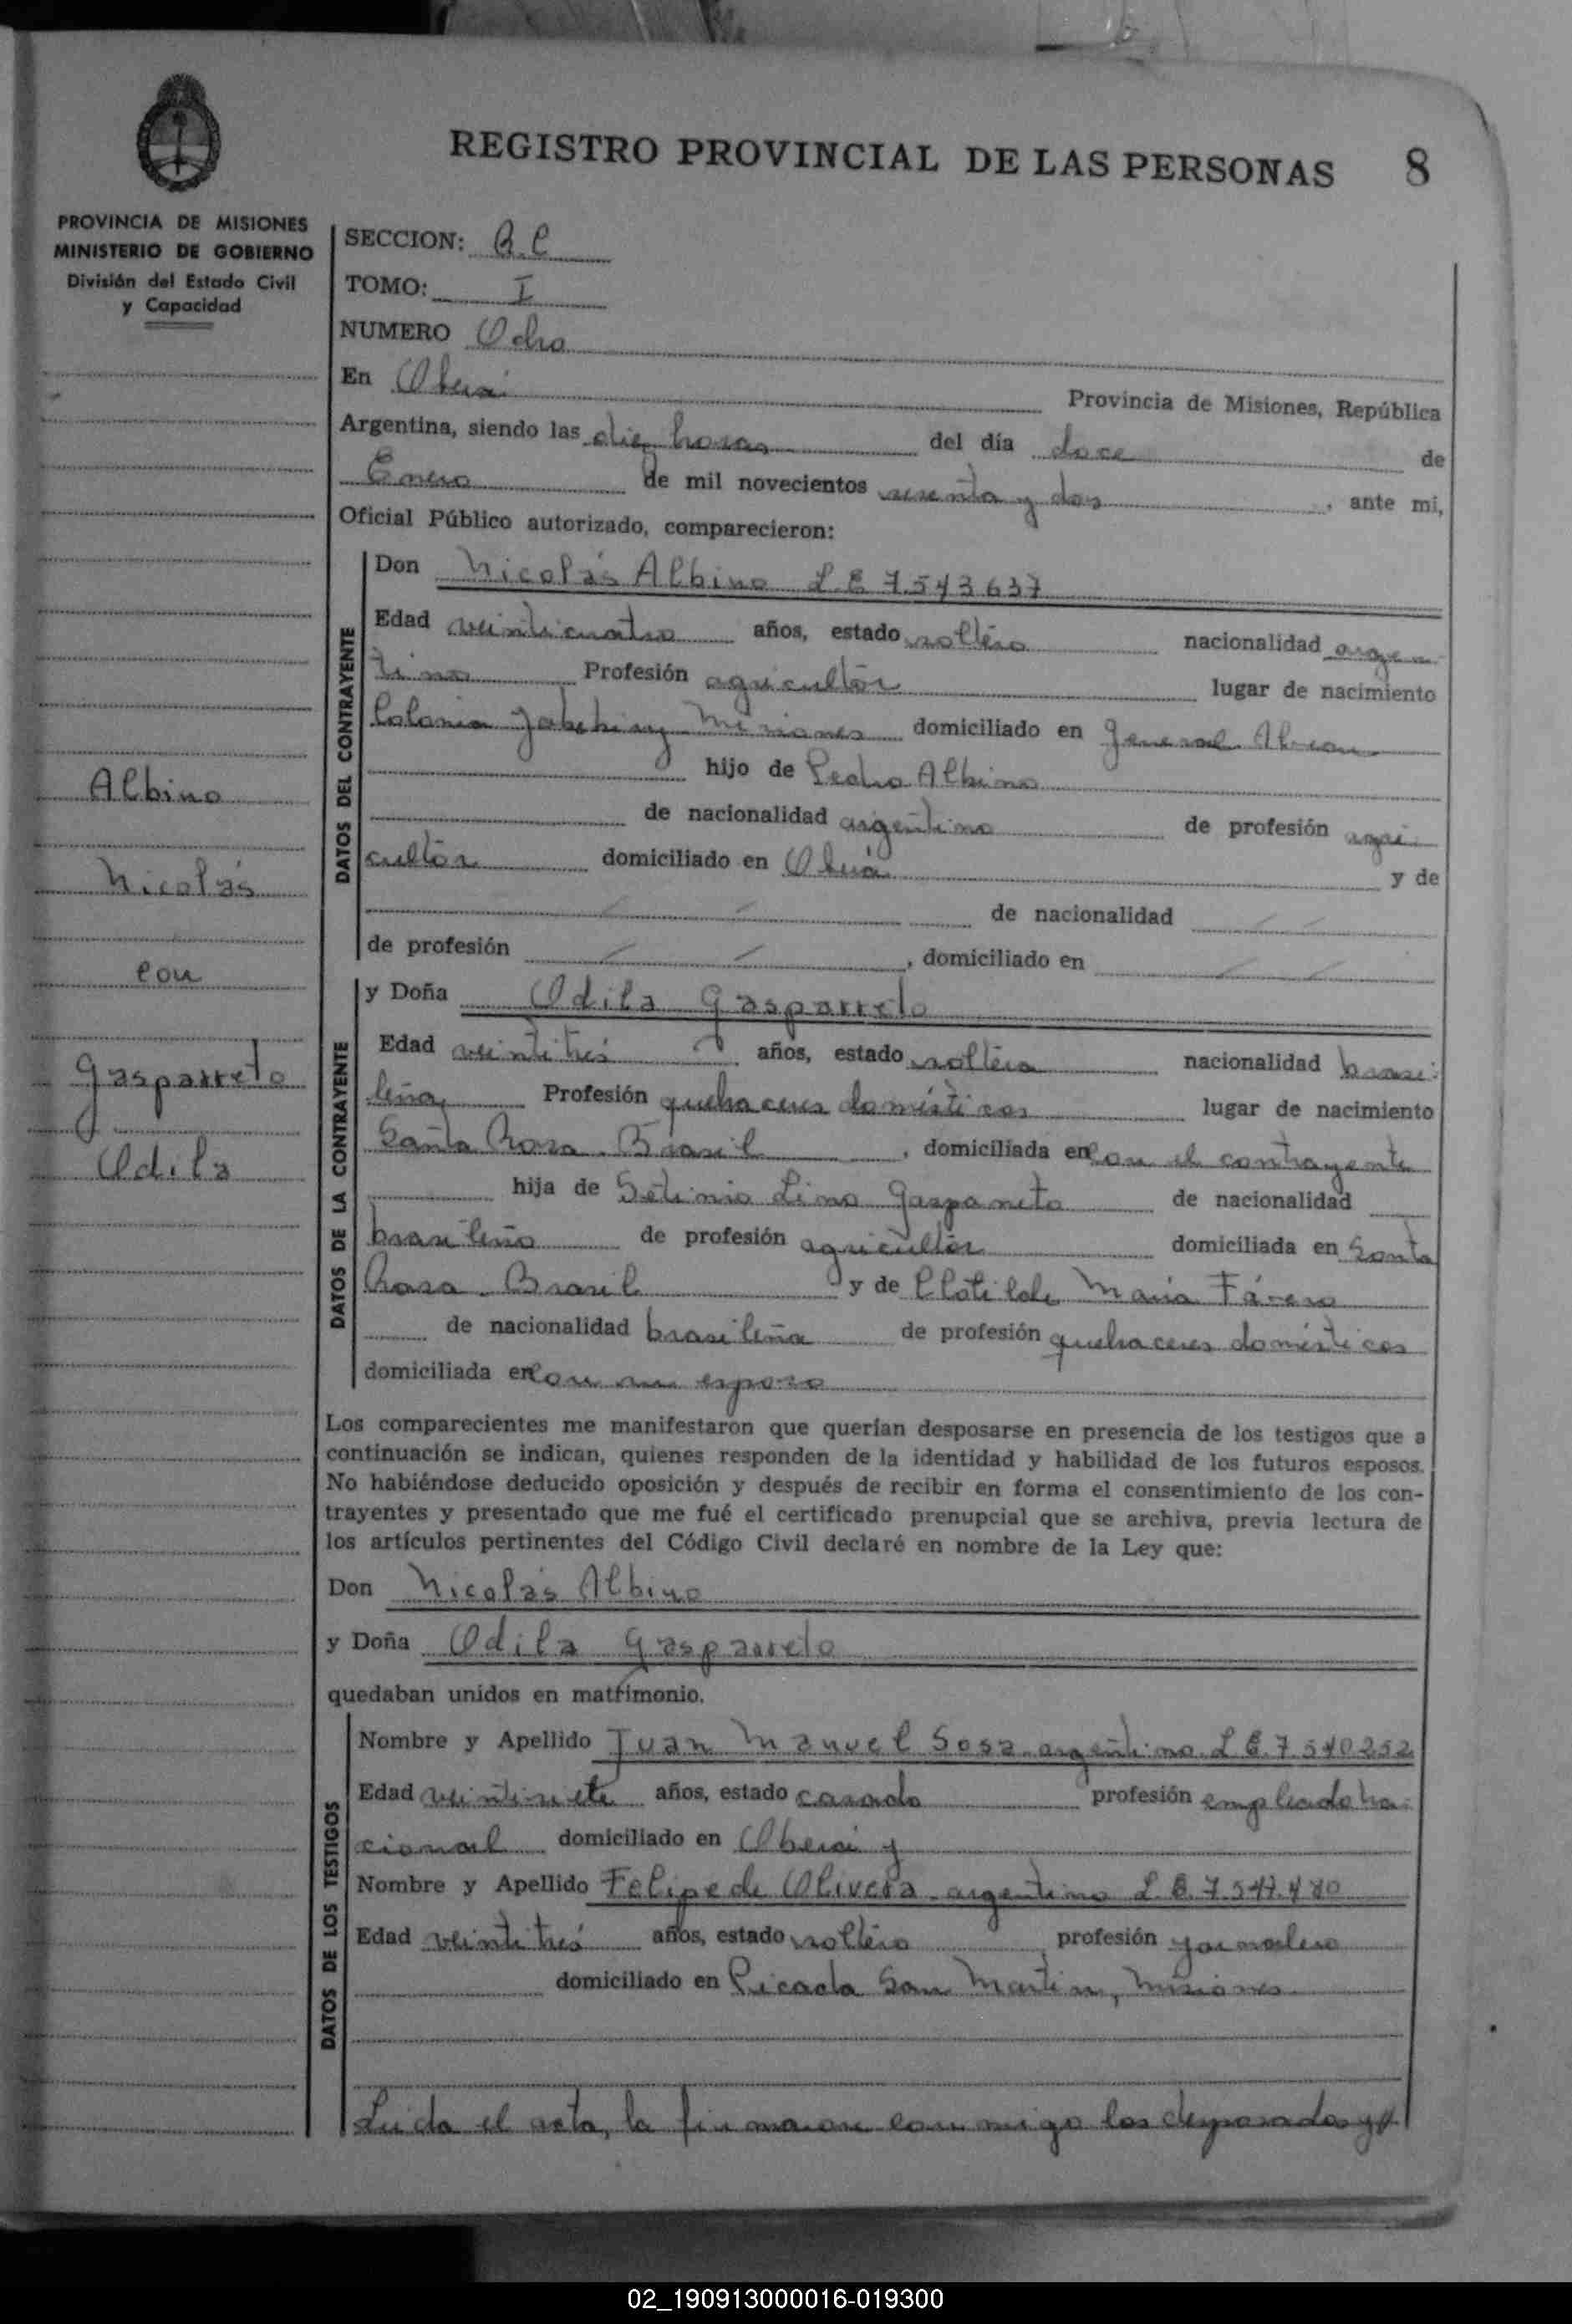 REGISTRO PROVINCIAL DE LAS PERSONAS 8
PROVINCIA DE MISIONES
MINISTERIO DE GOBIERNO
División del Estado Civil
y Capacidad
Albino
Nicolás
con
Gasparreto
Odila
SECCION:
TOMO: I
NUMERO Ocho
En Oberá Provincia de Misiones, República
Argentina, siendo las diez horas del día doce de
Enero de mil novecientos sesenta y dos, ante mi,
Oficial Público autorizado, comparecieron:
DATOS DEL CONTRAYENTE
Don Nicolás Albino L.E 7.543637
Edad veinticuatro años, estado soltero nacionalidad argen
tino Profesión agricultor lugar de nacimiento
Colonia Misiones domiciliado en General Alvear
hijo de Pedro Albino
de nacionalidad argentino de profesión agri
cultor domiciliado en Oberá y de
de nacionalidad
de profesión , domiciliado en
DATOS DE LA CONTRAYENTE
y Doña Odila Gasparreto
Edad veintitrés años, estado soltera nacionalidad brasi
leña, Profesión quehaceres domésticos lugar de nacimiento
Santa Rosa. Brasil , domiciliada en con el contrayente
hija de Setimio Lino Gasparreto de nacionalidad
brasileño de profesión agricultor domiciliada en Santa
Rosa. Brasil y de Clotilde María Fávero
de nacionalidad brasileña de profesión quehaceres domésticos
domiciliada en con su esposo
Los comparecientes me manifestaron que querían desposarse en presencia de los testigos que a
continuación se indican, quienes responden de la identidad y habilidad de los futuros esposos.
No habiéndose deducido oposición y después de recibir en forma el consentimiento de los con-
trayentes y presentado que me fué el certificado prenupcial que se archiva, previa lectura de
los artículos pertinentes del Código Civil declaré en nombre de la Ley que:
Don Nicolás Albino
y Doña Odila Gasparreto
quedaban unidos en matrimonio.
DATOS DE LOS TESTIGOS
Nombre y Apellido Juan Manuel Sosa argentino. L.E. 7.540252
Edad veintisiete años, estado casado profesión empleado na
cional domiciliado en Oberá y
Nombre y Apellido Felipe de Olivera argentino L.E. 7.547.480
Edad veintitrés años, estado soltero profesión jornalero
domiciliado en Picada San Martin, Misiones
Leida el acta, la firmaron conmigo los desposados y
02_190913000016-019300